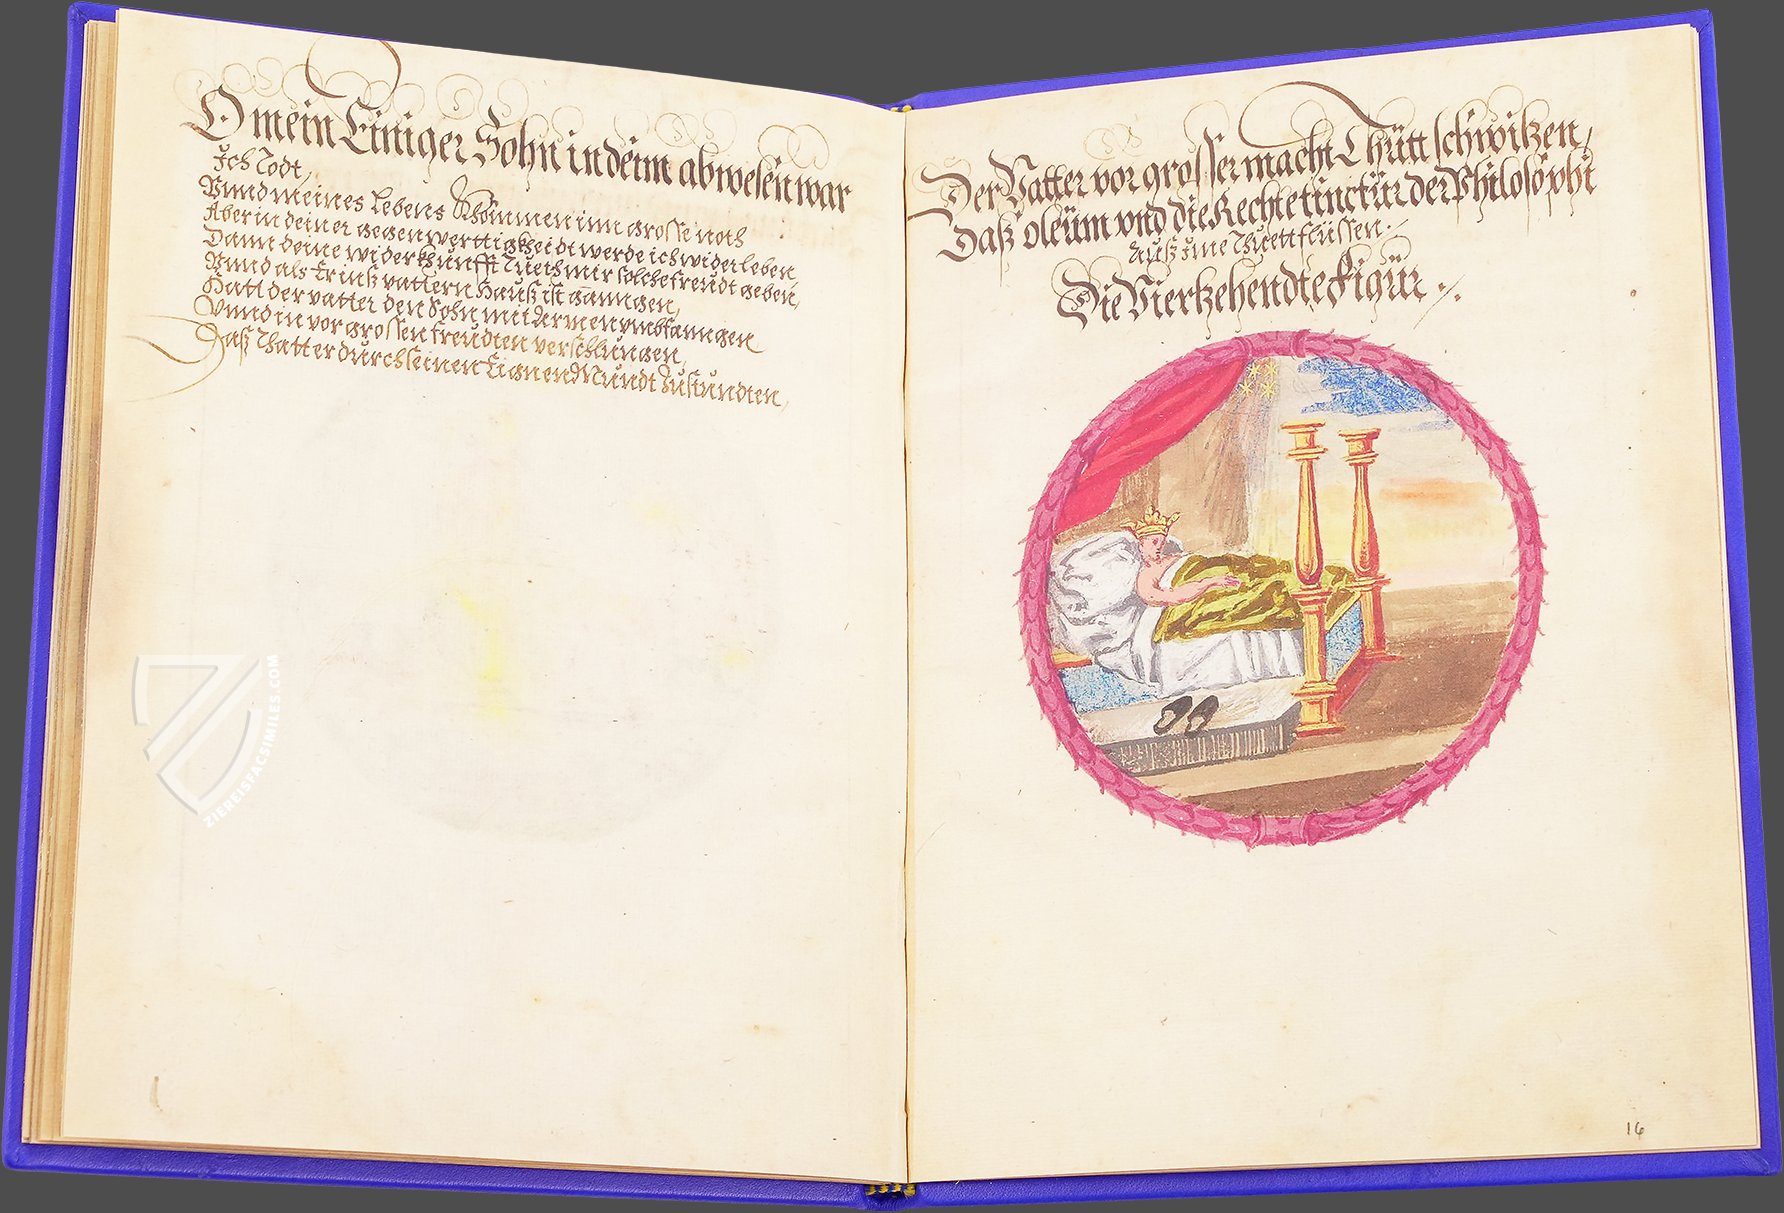 O mein Einiger Sohn in deim abwesen war
Ich Todt,
Vnnd meines Lebens khommen inn grosse noth
Aber in deiner gegenwerttigkheidt werde ich wider leben
Dann deine widerkhunfft Tueth mir solche freudt geben,
Vnnd als Er inß vattern Hauß ist ganngen,
Hatt der vatter den Sohn mit Armen vmbfanngen
Vnnd in vor grossen freudten verschlungen,
Daß Thatt er durch seinen Eignen Mundt Zustundten,
Der Vatter vor grosser macht Thütt schwitzen,
Daß oleüm vnd die Rechte tinctür der Philosophi
Auß ime Thuett flüssen.
Die Viertzehendte Figür
16
ZIEREISFACSIMILES.COM